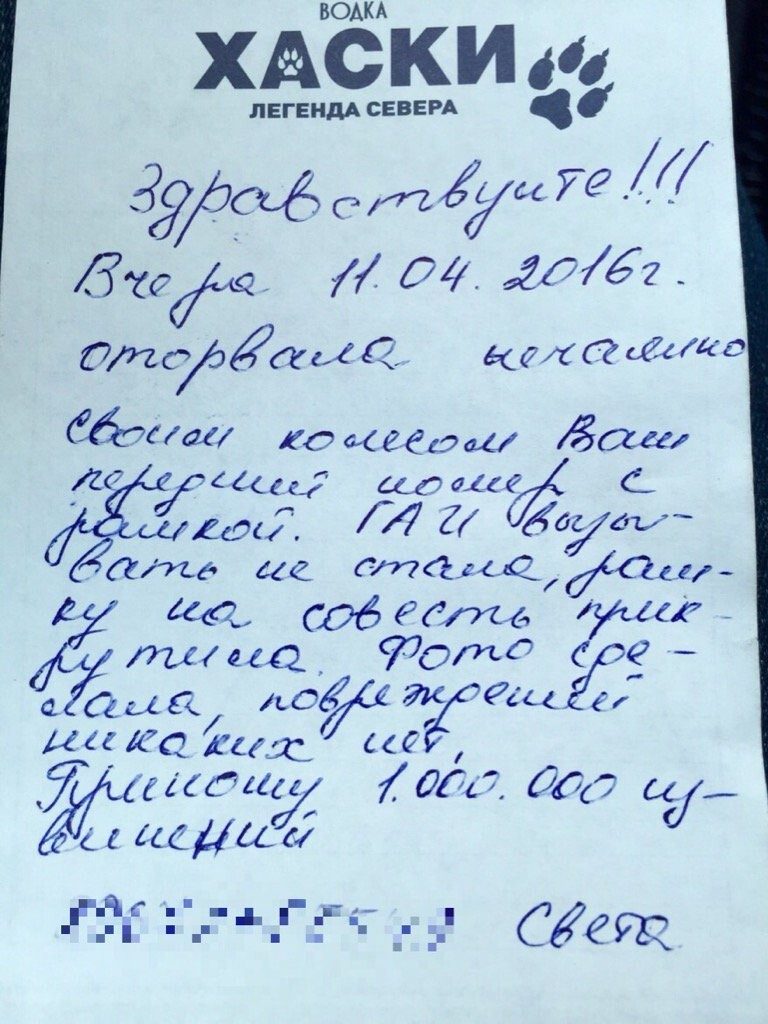 ВОДКА
ХАСКИ
ЛЕГЕНДА СЕВЕРА
Здравствуйте!!!
Вчера 11.04.2016г.
оторвала нечаянно
своим колесом Ваш
передний номер с
рамкой. ГАИ вызы-
вать не стала, рам-
ку на совесть прик-
рутила. Фото сде-
лала, повреждений
никаких нет.
Приношу 1.000.000 из-
винений
Света